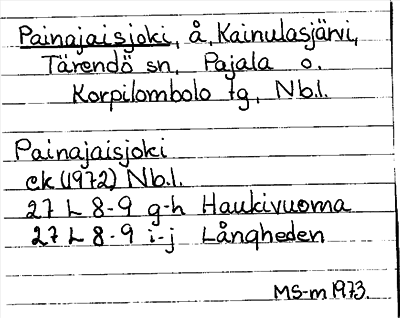 Painajaisjoki, å, Kainulasjärvi,
Tärendö sn, Pajala o.
Korpilombolo tg, Nb.l.
Painajaisjoki
ek (1972) Nb.l.
27 L 8-9 g-h Haukivuoma
27 L 8-9 i-j Långheden
MS-m 1973.